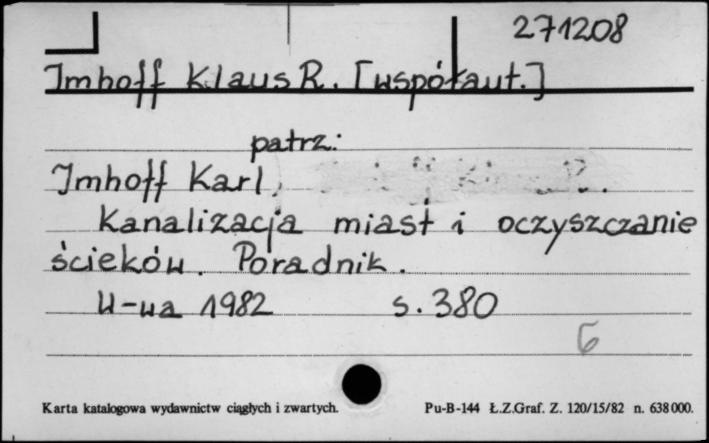 271208
Imhoff Klaus R. [współaut.]
patrz:
Imhoff Karl,
Kanalizacja miast i oczyszczanie
ścieków. Poradnik.
W-wa 1982 s. 380
6
Karta katalogowa wydawnictw ciągłych i zwartych. Pu-B-144 Ł.Z.Graf. Z. 120/15/82 n. 638000.